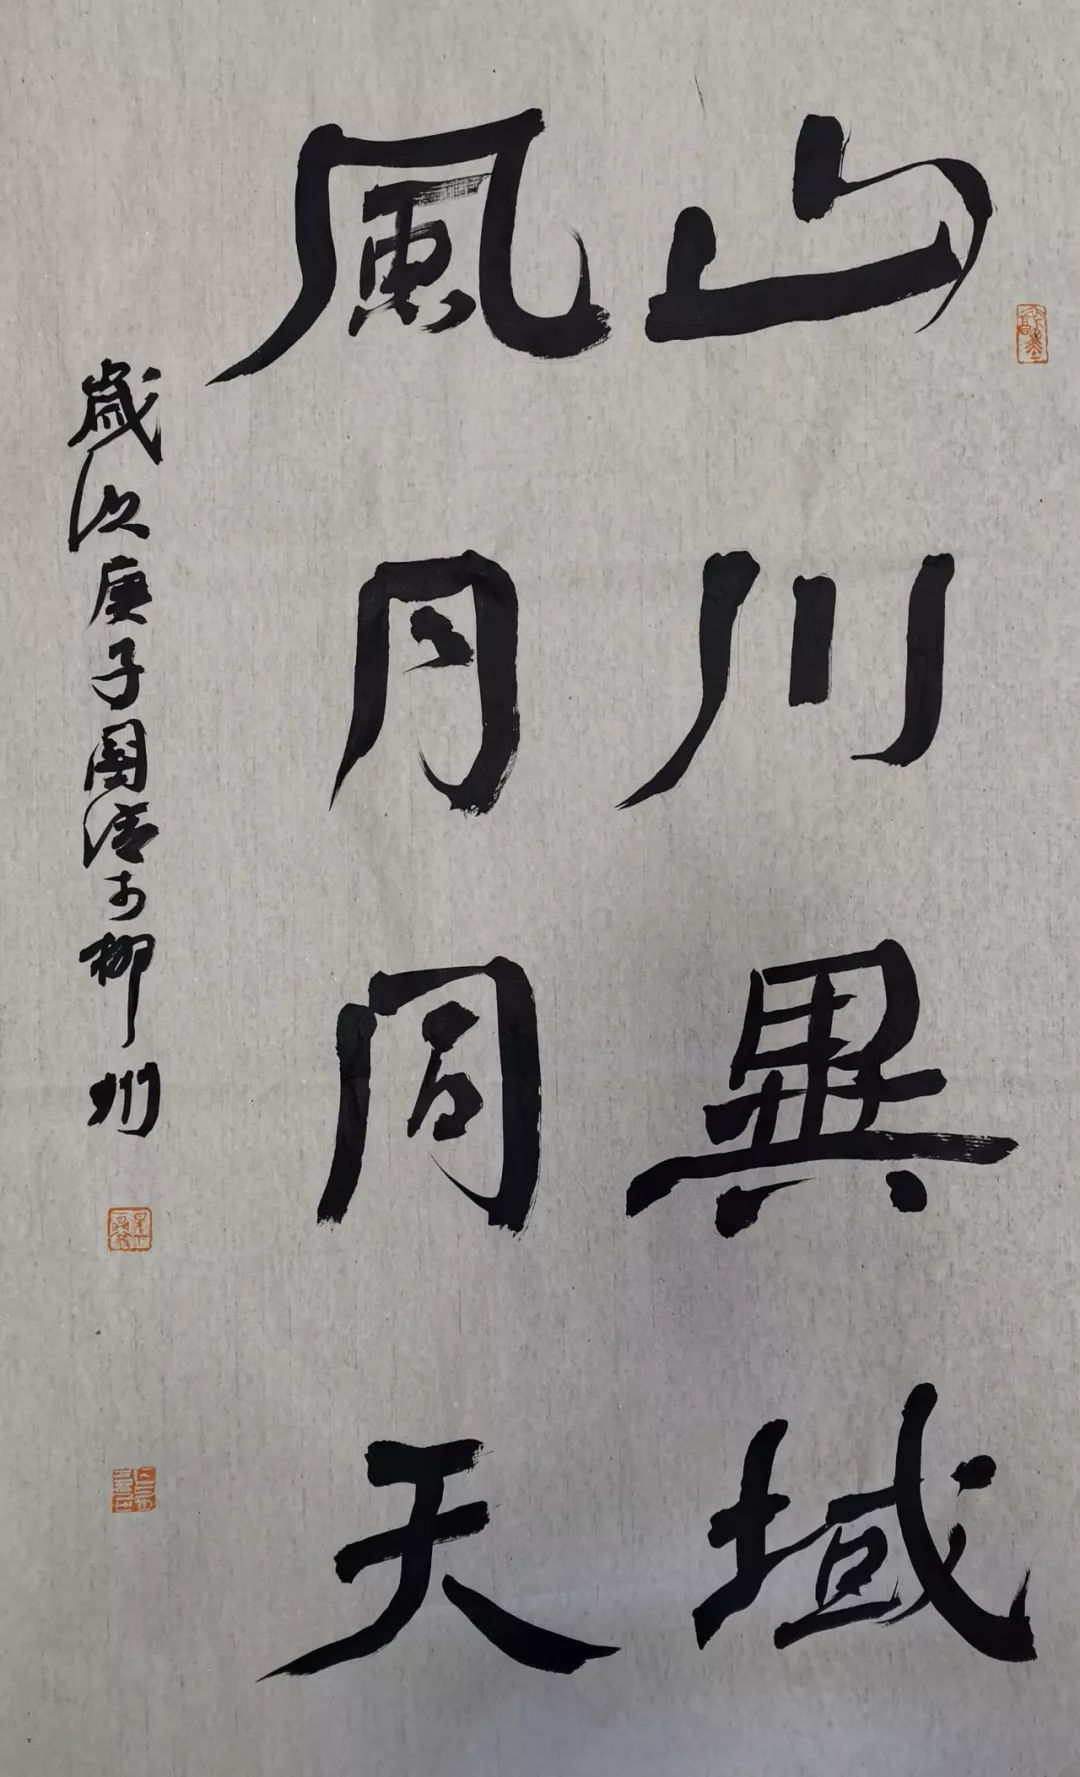 山川異域
風月同天
歲次庚子國清於柳州